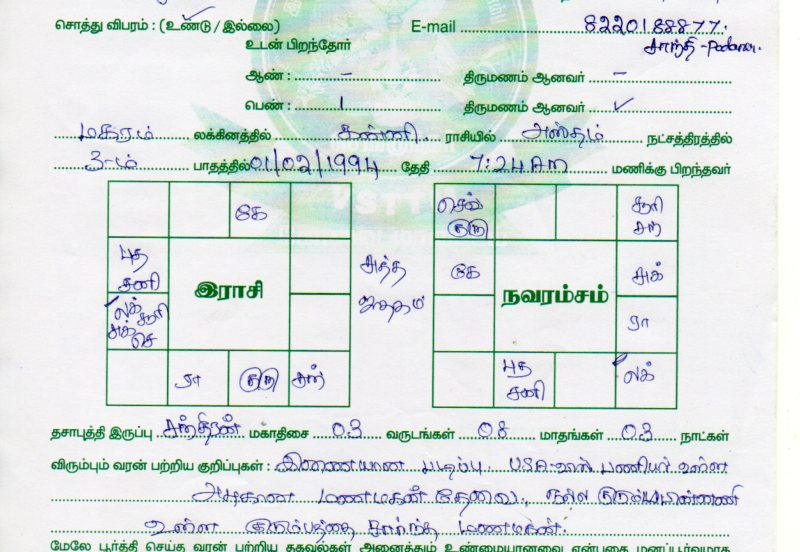 சொத்து விபரம் : (உண்டு / இல்லை) E-mail 8220188877.
உடன் பிறந்தோர் சாந்தி -
ஆண் : – திருமணம் ஆனவர் –
பெண் : 1 திருமணம் ஆனவர் ✓
மகரம் லக்கினத்தில் கன்னி ராசியில் அஸ்தம் நட்சத்திரத்தில்
3-ம் பாதத்தில் 01/02/1994 தேதி 7:24 AM மணிக்கு பிறந்தவர்
கே செவ் சூரி
குரு சந்
புத சனி இராசி சுத்த ஜாதகம் கே நவரம்சம் சுக்
லக் சூரி சுக் செ ரா
ரா குரு சந் புத சனி லக்
தசாபுத்தி இருப்பு சந்திரன் மகாதிசை 03 வருடங்கள் 08 மாதங்கள் 03 நாட்கள்
விரும்பும் வரன் பற்றிய குறிப்புகள் : இணையான படிப்பு. USA-வில் பணியில் உள்ள
அழகான மணமகன் தேவை, நல்ல குடும்பபின்னணி
உள்ள குடும்பத்தை சார்ந்த மணமகன்.
மேலே பூர்த்தி செய்த வரன் பற்றிய தகவல்கள் அனைத்தும் உண்மையானவை என்பதை மனப்பூர்வமாக